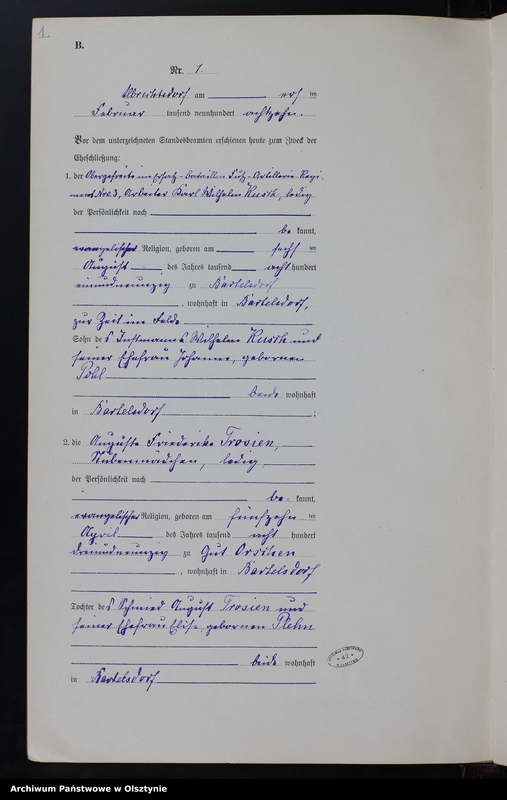 1.
B.
Nr. 1.
Albrechtsdorf am ersten
Februar tausend neunhundert achtzehn.
Vor dem unterzeichneten Standesbeamten erschienen heute zum Zweck der
Eheschließung:
1. der Obergefreite im Ersatz-Bataillon Fuß-Artillerie-Regi-
ment Nro. 3, Arbeiter Karl Wilhelm Kusch, ledig
der Persönlichkeit nach
be kannt,
evangelischer Religion, geboren am sechsten
August des Jahres tausend acht hundert
einundneunzig zu Bartelsdorf
, wohnhaft in Bartelsdorf,
zur Zeit im Felde
Sohn des Instmanns Wilhelm Kusch und
seiner Ehefrau Johanne, geborenen
Pohl
beide wohnhaft
in Bartelsdorf ;
2. die Auguste Friederike Trosien,
Stubenmädchen, ledig
der Persönlichkeit nach
be- kannt,
evangelischer Religion, geboren am fünfzehnten
April des Jahres tausend acht hundert
dreiundneunzig zu Gut Orschen
, wohnhaft in Bartelsdorf
Tochter des Schmied August Trosien und
seiner Ehefrau Elise, geborenen Plehn
beide wohnhaft
in Bartelsdorf
* 42 *
Archiwum Państwowe w Olsztynie